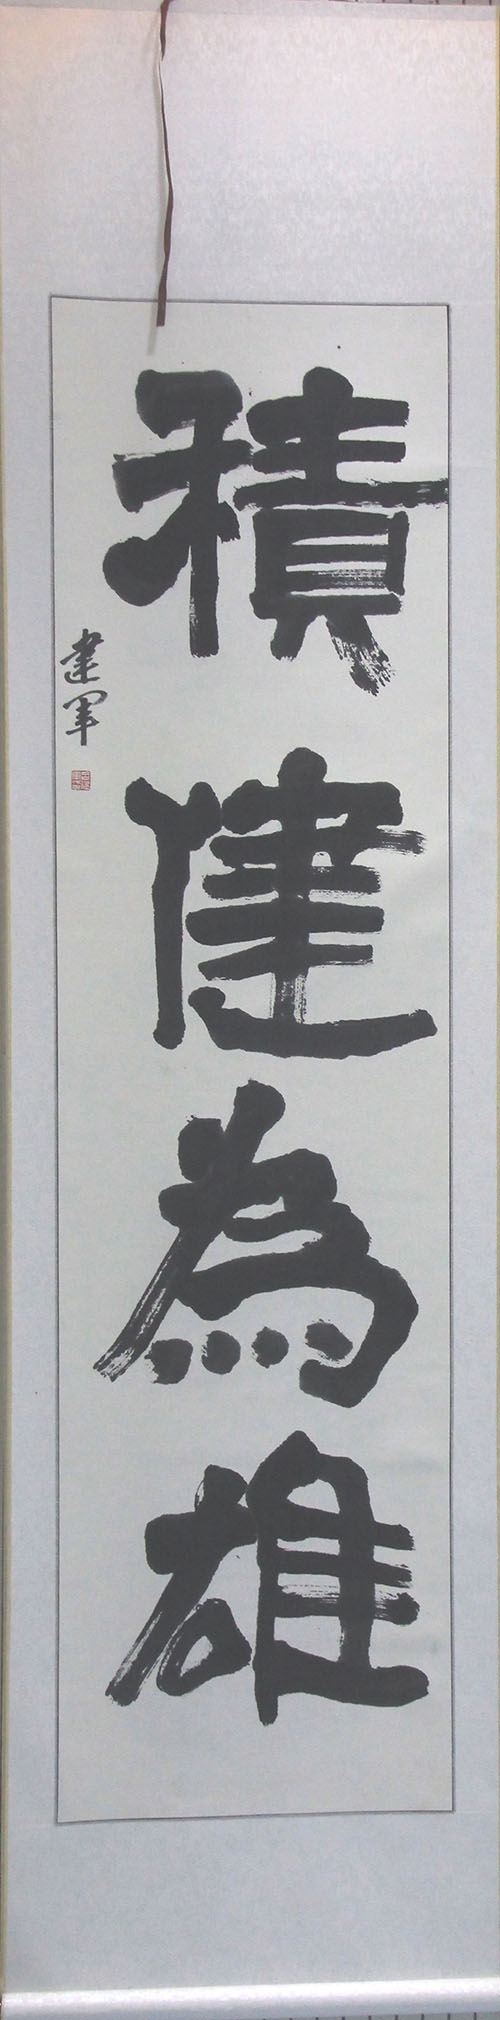 積健為雄
建軍